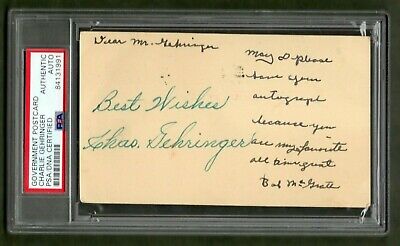 GOVERNMENT POSTCARD
CHARLIE GEHRINGER
PSA/DNA CERTIFIED
AUTHENTIC
AUTO
84131991
PSA
Dear Mr. Gehringer
May I please
have your
autograph
because you
are my favorite
all time great
Bob McGrath
Best Wishes
Chas. Gehringer